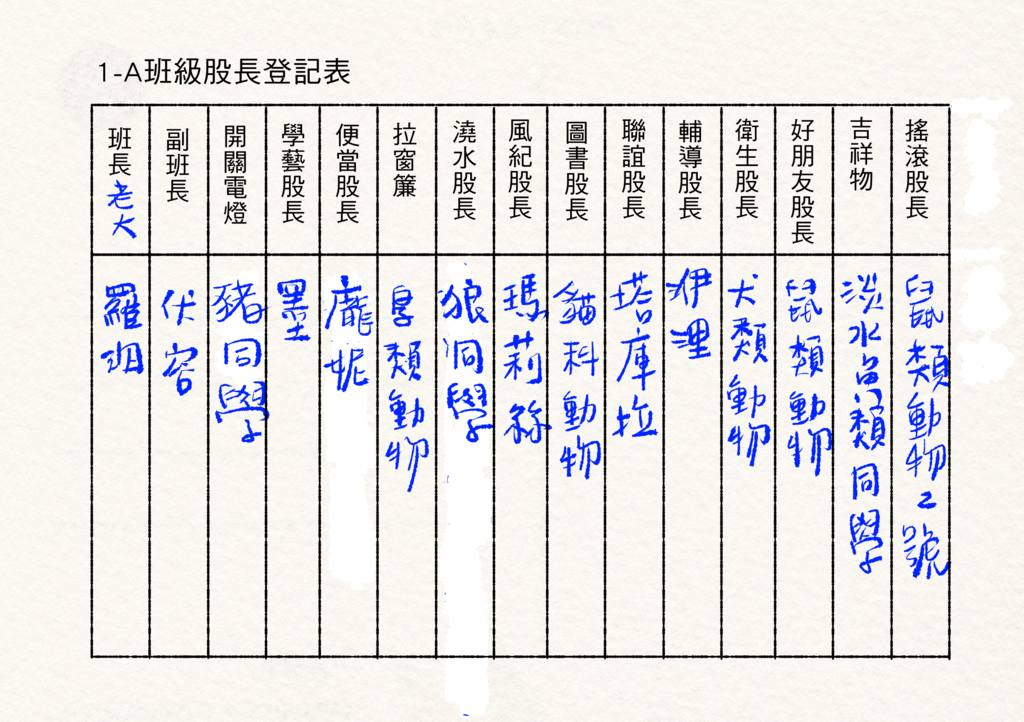 1-A班級股長登記表
班長老大
副班長
開關電燈
學藝股長
便當股長
拉窗簾
澆水股長
風紀股長
圖書股長
聯誼股長
輔導股長
衛生股長
好朋友股長
吉祥物
搖滾股長
羅班
伏容
豬同學
墨
龐妮
類動物
狼同學
瑪莉絲
貓科動物
塔庫拉
伊理
犬類動物
鼠類動物
淡水魚類同學
鼠類動物2號